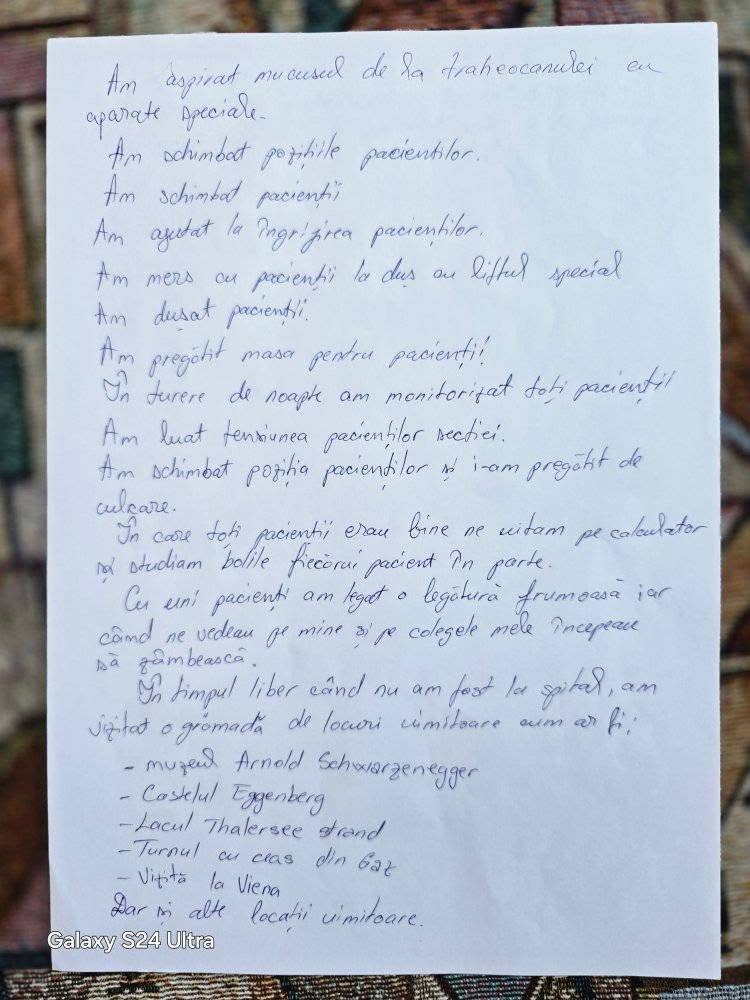 Am aspirat mucusul de la traheocanulei cu
aparate speciale.
Am schimbat pozițiile pacientilor.
Am schimbat pacienții
Am ajutat la îngrijirea pacienților.
Am mers cu pacienții la duș cu liftul special
Am dușat pacienții.
Am pregătit masa pentru pacienți!
În turere de noapte am monitorizat toți pacienții
Am luat tensiunea pacienților sectiei.
Am schimbat poziția pacienților și i-am pregătit de
culcare.
În care toți pacientii erau bine ne uitam pe calculator
și studiam bolile fiecărui pacient în parte.
Cu uni pacienți am legat o legătură frumoasă iar
când ne vedeau pe mine și pe colegele mele începeau
să zâmbească.
În timpul liber când nu am fost la spital, am
vizitat o grămadă de locuri uimitoare cum ar fi:
- muzeul Arnold Schwarzenegger
- Castelul Eggenberg
- Lacul Thalersee strand
- Turnul cu ceas din Gaz
- Vizită la Viena
Dar și alte locații uimitoare.
Galaxy S24 Ultra